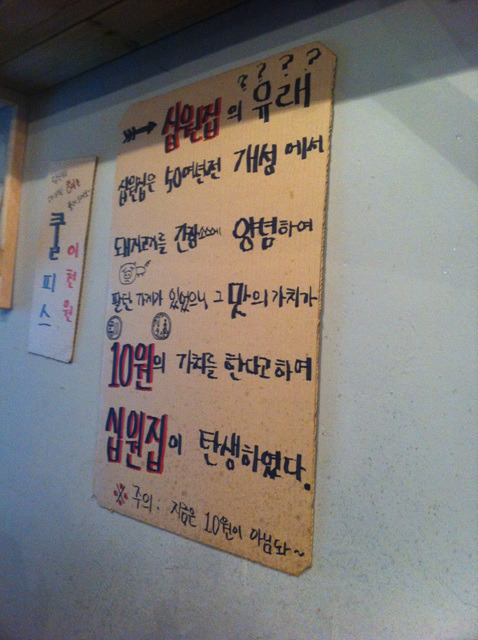 ????
십원집의 유래
십원집은 50여년전 개성에서
돼지고기를 간장소스에 양념하여
팔던 가게가 있었으니, 그 맛의 가치가
10원의 가치를 한다고하여
십원집이 탄생하였다.
※ 주의. 지금은 10원이 아님돠~
쿨피스
이천원